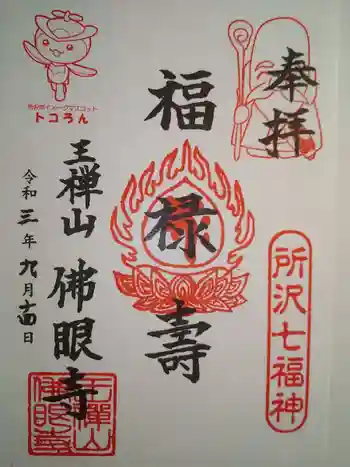 奉拝
所沢七福神
福禄寿
所沢市イメージマスコット
トコろん
王禅山
佛眼寺
令和三年九月十四日
王禅山佛眼寺